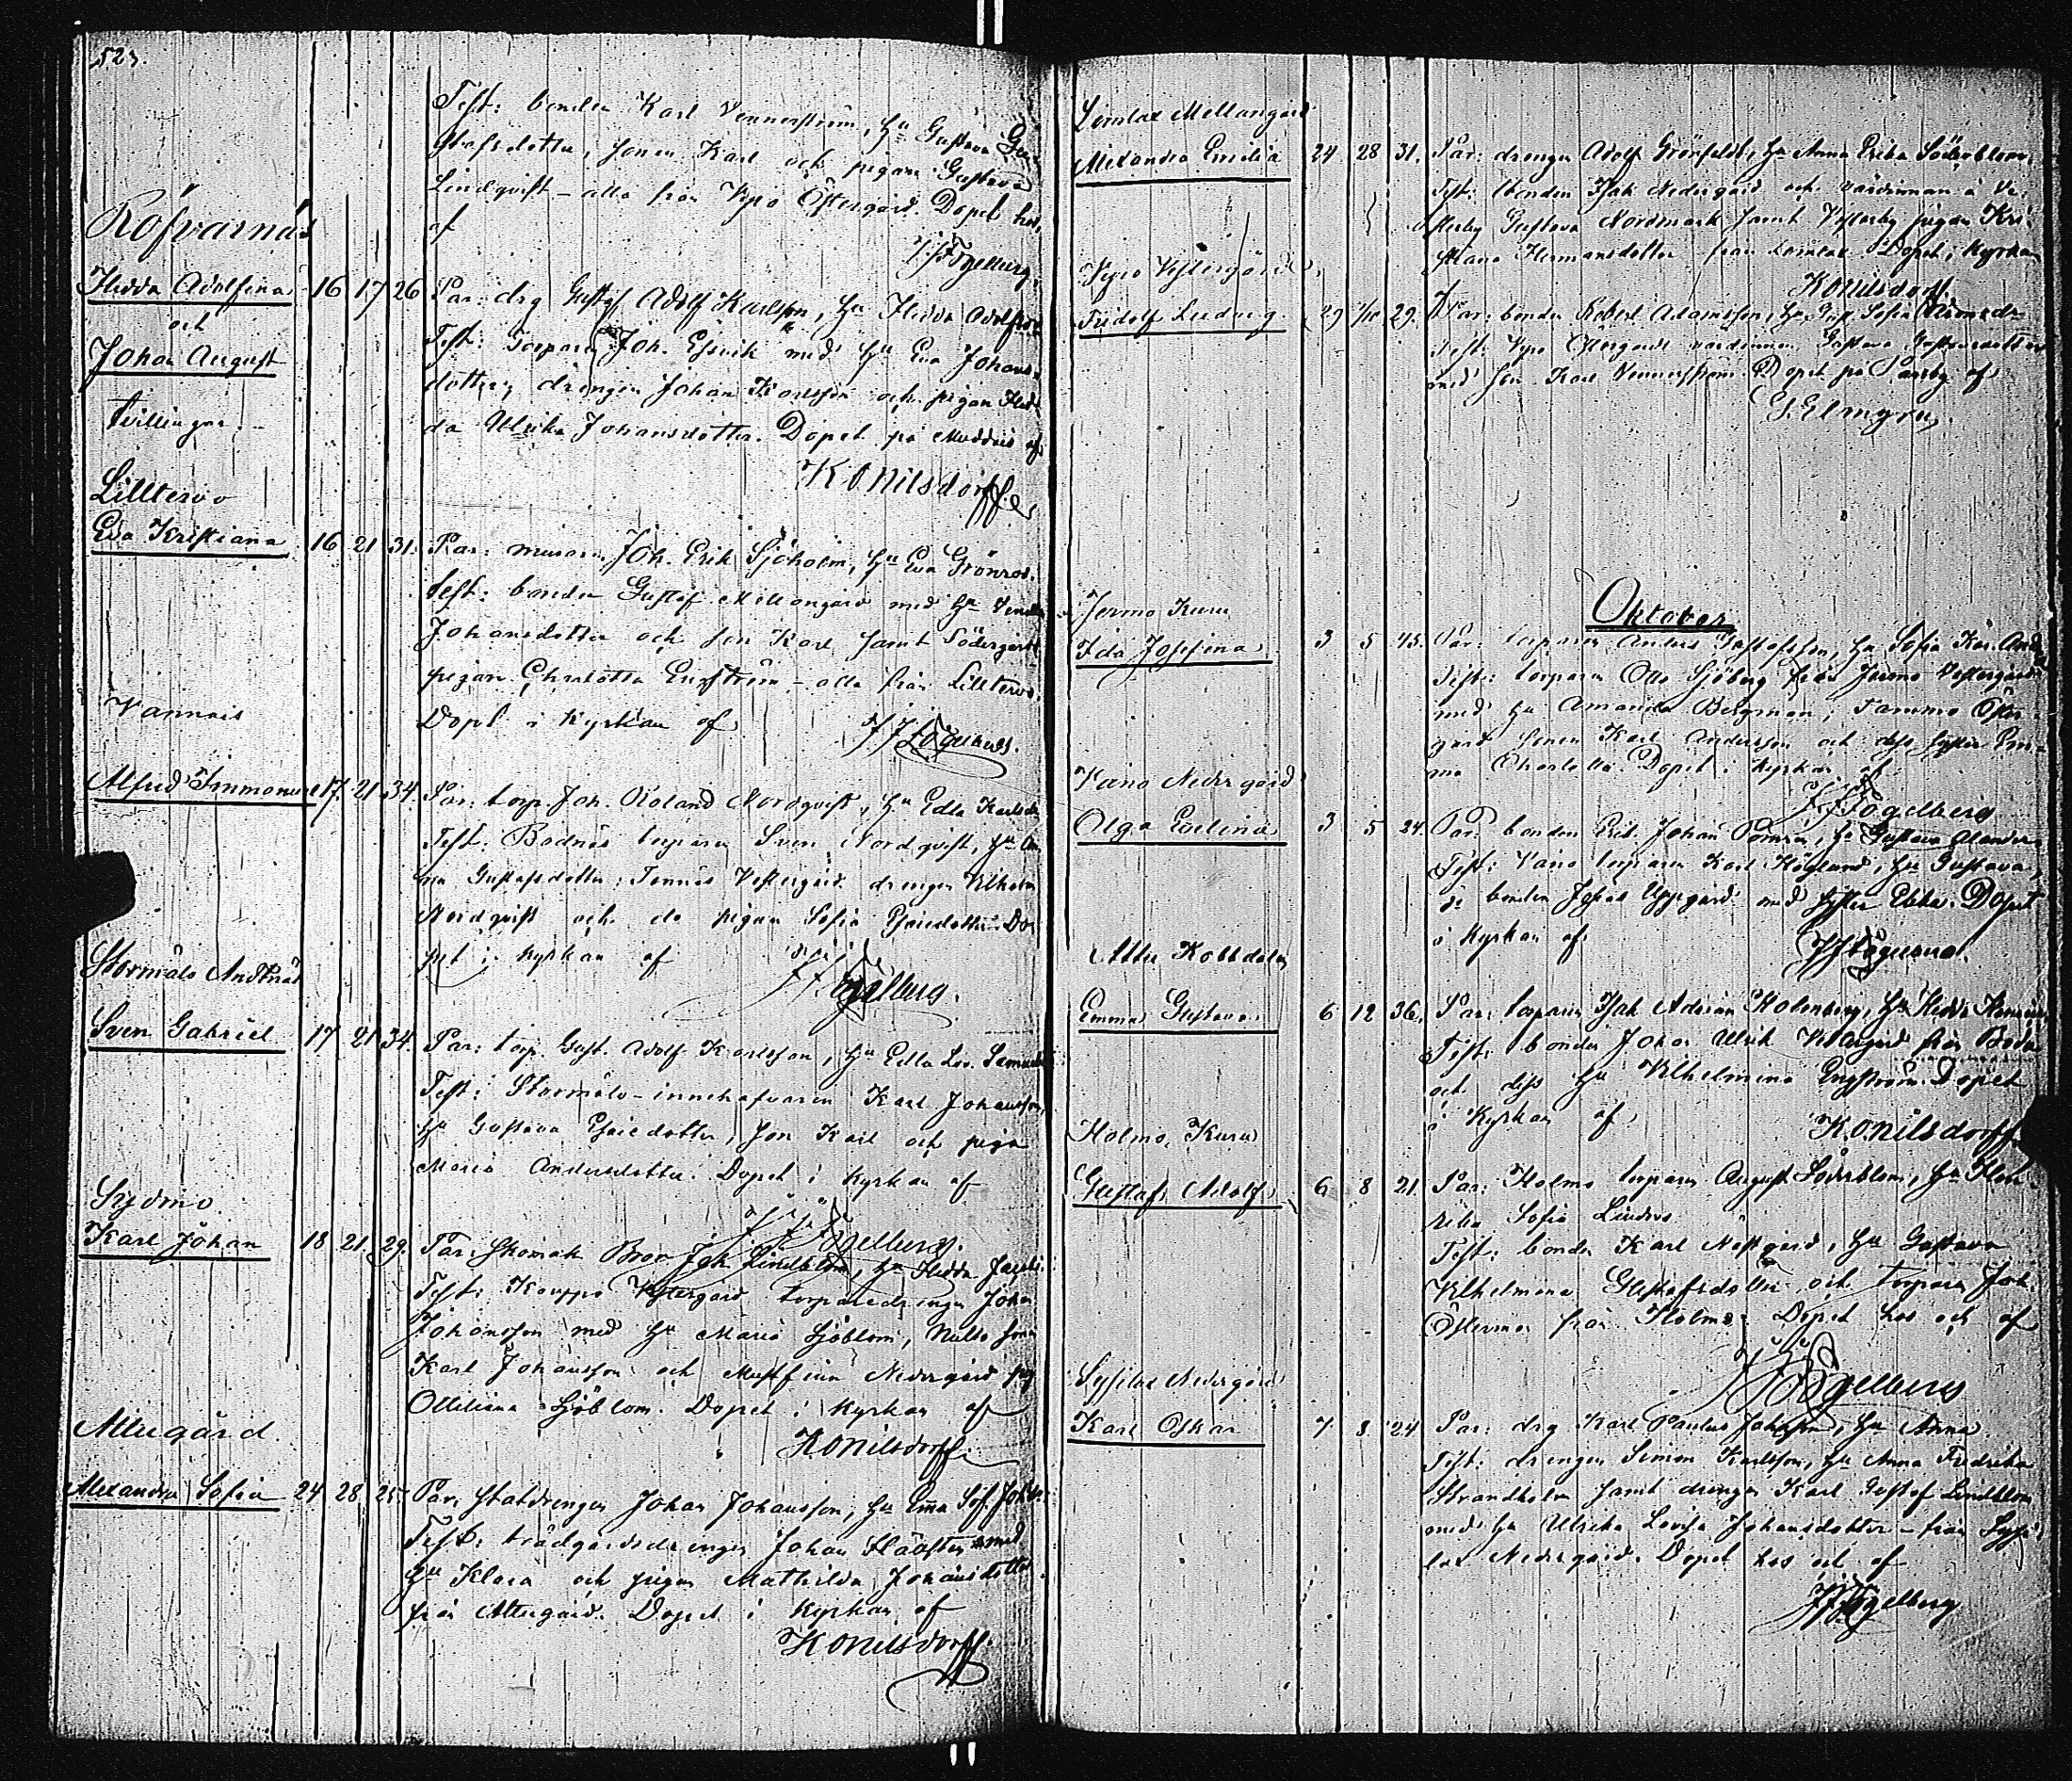 523.
Test: bonden Karl Vennerström, hu Gustava Gu-
stafsdotter, sonen Karl och pigan Gustava
Lindqvist – alla från Vepo Östergård. Döpt hos
af
Rofvarnäs
J J Fogelberg
Hedda Adolfina 16 17 26 Par: drg Gustaf Adolf Karlsson, hu Hedda Adolfsdr
och
Test: Torparen Joh. Efsvik med hu Eva Johans-
Johan August
dotter, drengen Johan Karlsson och pigan Hed-
tvillingar.
da Ulrika Johansdotter. Döpet på Muddais af
K O Nilsdorff
Lilltervo
Eva Kristiana 16 21 31. Par: muraren Joh. Erik Sjöholm, hu Eva Grönroos.
Test: bonden Gustaf Mellangård med hu Vendla
Johansdotter och son Karl samt Södergårds
pigan Charlotta Engström – alla från Lilltervo.
Vannais
Döpt i kyrkan af J J Fogelberg.
Alfred Immanuel 17 21 34. Par: torp. Joh. Roland Nordqvist, hu Edla Karlsdr
Test: Bodnäs torparen Sven Nordqvist, hu An-
na Gustafsdotter; Tennäs Vestergård drengen Vilhelm
Nordqvist och do pigan Sofia Esaiedotter. Dö-
pet i kyrkan af
Stormälo Andtnäs
J J Fogelberg.
Sven Gabriel 17 21 34. Par: torp. Gust. Adolf Karlsson, hu Edla Lov. Samuelsdr
Test: Stormälo-innehafvaren Karl Johansson,
hu Gustava Esaiedotter, son Karl och piga
Maria Andersdotter. Döpet i kyrkan af
Sydmo.
J J Fogelberg.
Karl Johan 18 21 29. Par: Skomak Bror Joh Lindblom, hu Hedda Jacobs.
Test: Kouppo Vestergård torparedrengen Johan
Johansson med hu Maria Sjöblom, Multo sonen
Karl Johansson och Mustfinn Nedergård pig
Ottiliana Sjöblom. Döpet i kyrkan af
K O Nilsdorff.
Attugård.
Alexandra Sofia 24 28 25. Par: statdrengen Johan Johansson, hu Emma Sof. Johsdr
Test: trädgårdsdrengen Johan Flööster med
hu Klara och pigan Mathilda Johansdotter
från Attugård. Döpet i kyrkan af
K O Nilsdorff.
Lemlax Mellangård
Alexandra Emelia 24 28 31. Par: drengen Adolf Grönfeldt, hu Anna Erika Söderblom.
Test: bonden Isak Nedergård och värdinnan å Ve-
sterby Gustava Nordmark samt Vesterby pigan Kri-
stiana Hermansdotter från Lemlax. Döpet i kyrkan
af K O Nilsdorff.
Vepo Vestergård
Fridolf Ludvig. 29 1/10 29. Par: bonden Robert Adamsson, hu Gust. Sofia
Test: Vepo Östergård värdinnan Gustava Gustavsdotter
med son Karl Vennerström. Döpet på Parsby af
G. Elmgren.
Oktober
Jermo Kuru
Ida Josefina 3 5 45. Par: torparen Anders Gustafsson, hu Sofia Kar. Andr
Test: torparen Otto Sjöberg från Jermo Vestergård
med hu Amanda Bergman; Tammo Öster-
gård sonen Karl Andersson och dess syster Em-
ma Charlotta. Döpet i kyrkan af
J J Fogelberg
Väno Nedergård
Olga Evelina 3 5 24. Par: bonden Erik Johan hu Gustava Alander.
Test: Väno torparen Karl Höglund, hu Gustava,
do bonden Josas Uppgård med syster Ebba. Döpet
i kyrkan af J J Fogelberg.
Attu Kobbdalen
Emma Gustava 6 12 36. Par: torparen Isak Adrian Holmberg, hu Hedda
Test: bonden Johan Ulrik från Boda
och dess hu Vilhelmina Engström. Döpet
i kyrkan af
K. O. Nilsdorff
Holmo, Kuru
Gustaf Adolf 6 8 21. Par: Holmo torparen August Söderblom, hu Hen-
rika Sofia Lindros
Test: bonden Karl Nästgård, hu Gustava
Vilhelmina Gustafsdotter och torparen Joh.
Österman från Holmo. Döpet hos och af
J J Fogelberg
Sysilax Nedergård
Karl Oskar 7 8 24 Par: drg Karl Paulus Johsson, hu Anna
Test: drengen Simon Karlsson, hu Anna Fredrika
Strandholm samt drengen Karl Gustaf Lindblom
med hu Ulrika Lovisa Johansdotter – från Sysi-
lax Nedergård. Döpet hos och af
J J Fogelberg